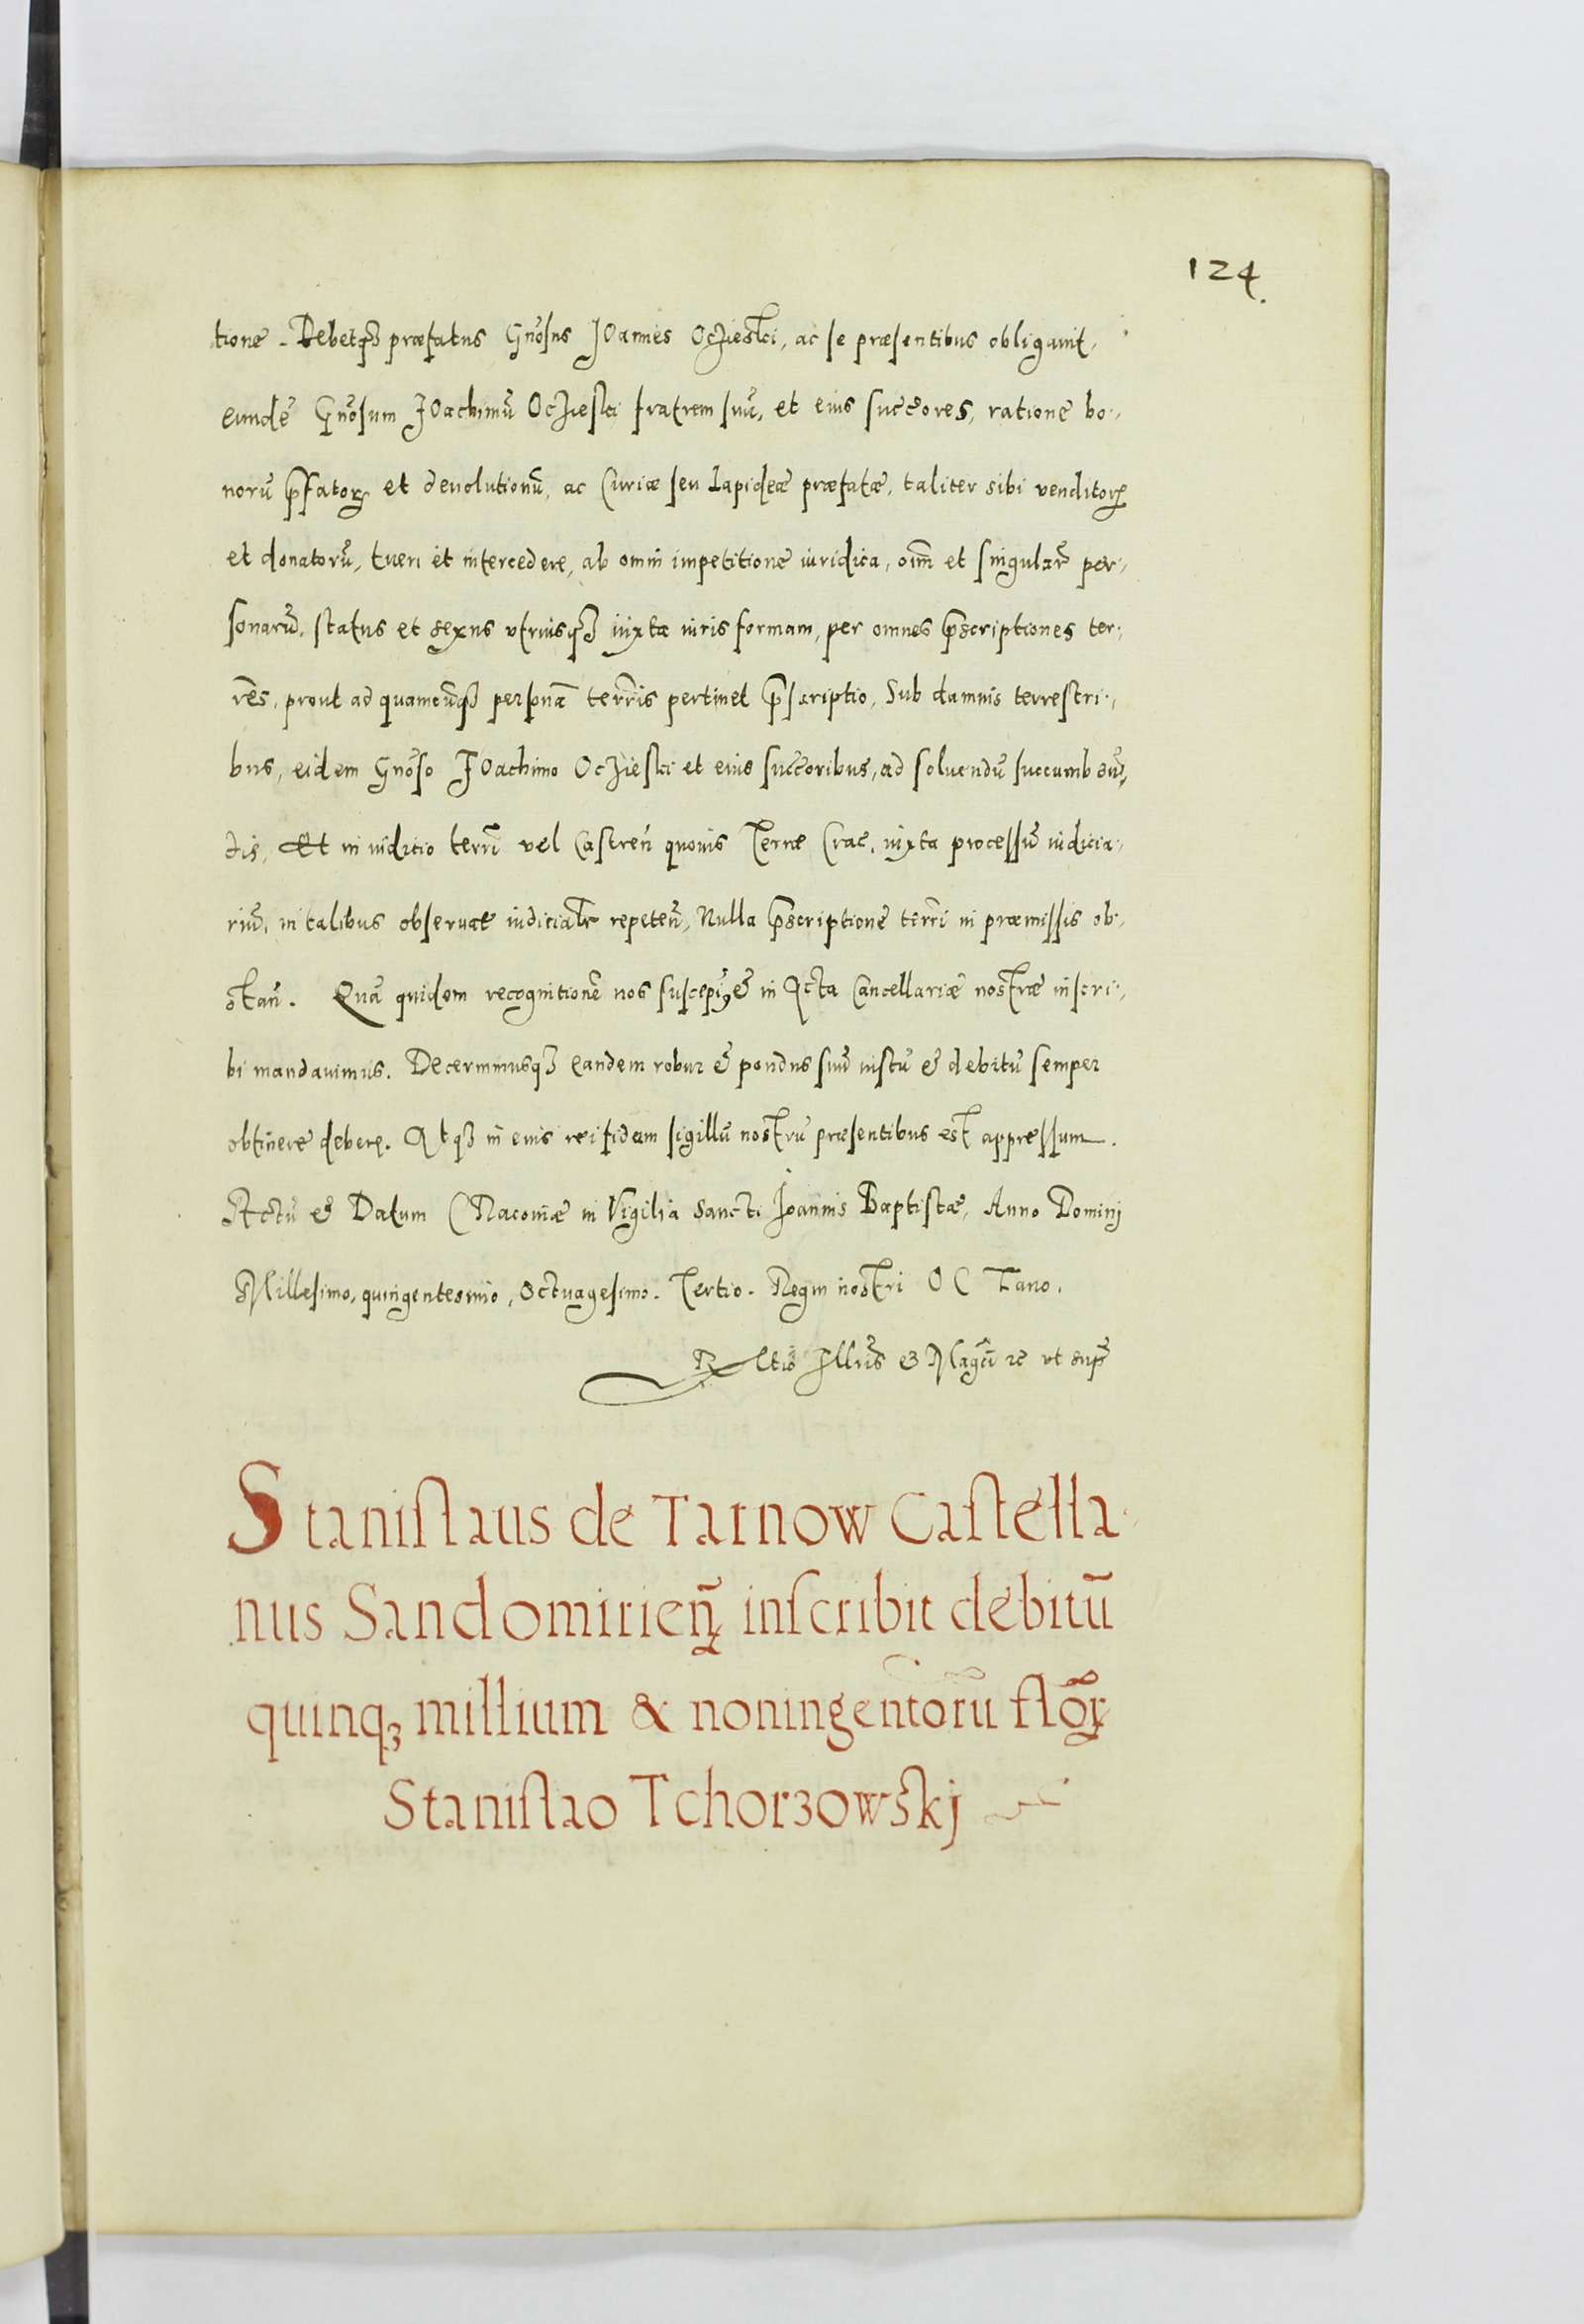 124.
tione. Debetq₃ præfatus Gnōsus Joannes Oczieski, ac se præsentibus obligauit,
eundē Gnōsum Joachimū Ocziesky fratrem suū, et eius succōres, ratione bo-
norū p̄fatoꝝ et deuolutionū, ac Curiæ seu Lapideæ præfatæ, taliter sibi venditoꝝ
et donatorū, tueri et intercedere, ab omni impetitione iuridica, oīm et singular̄ per-
sonarū, status et sexus vtriusq₃ iuxta iuris formam, per omnes p̄scriptiones ter-
rēs, prout ad quamcūq₃ persona᷅ terrīs pertinet p̄scriptio, Sub damnis terrestri-
bus, eidem Gnōso Joachimo Ocziesky et eius succōribus, ad soluendū succumben̄-
dis, Et in iuditio terrī vel Castren̄ quouis Terræ Crac. iuxta processū iudicia-
riū, in talibus obseruat̄ iudicialr̄ repeten̄, Nulla p̄scriptione terrī in præmissis ob-
stan̄. Quā quidem recognitionē nos suscepim9 & in Acta Cancellariæ nostræ inscri-
bi mandauimus. Decernimusq₃ eandem robur & pondus suū iustū & debitū semper
obtinere debere. Atq₃ in eius rei fidem sigillū nostrū præsentibus est appressum.
Actū & Datum Cracouiæ in Vigilia Sancti Joannis Baptistæ, Anno Dominj
Millesimo, quingentesimo, Octuagesimo. Tertio. Regni nostri OCTauo.
Rltiō Illrīs & Magcī ꝛc vt supr̄
Stanislaus de Tarnow Castella-
nus Sandomirien̄ inscribit debitū
quinq₃ millium & noningentorū flōꝝ
Stanislao Tchorzowskj